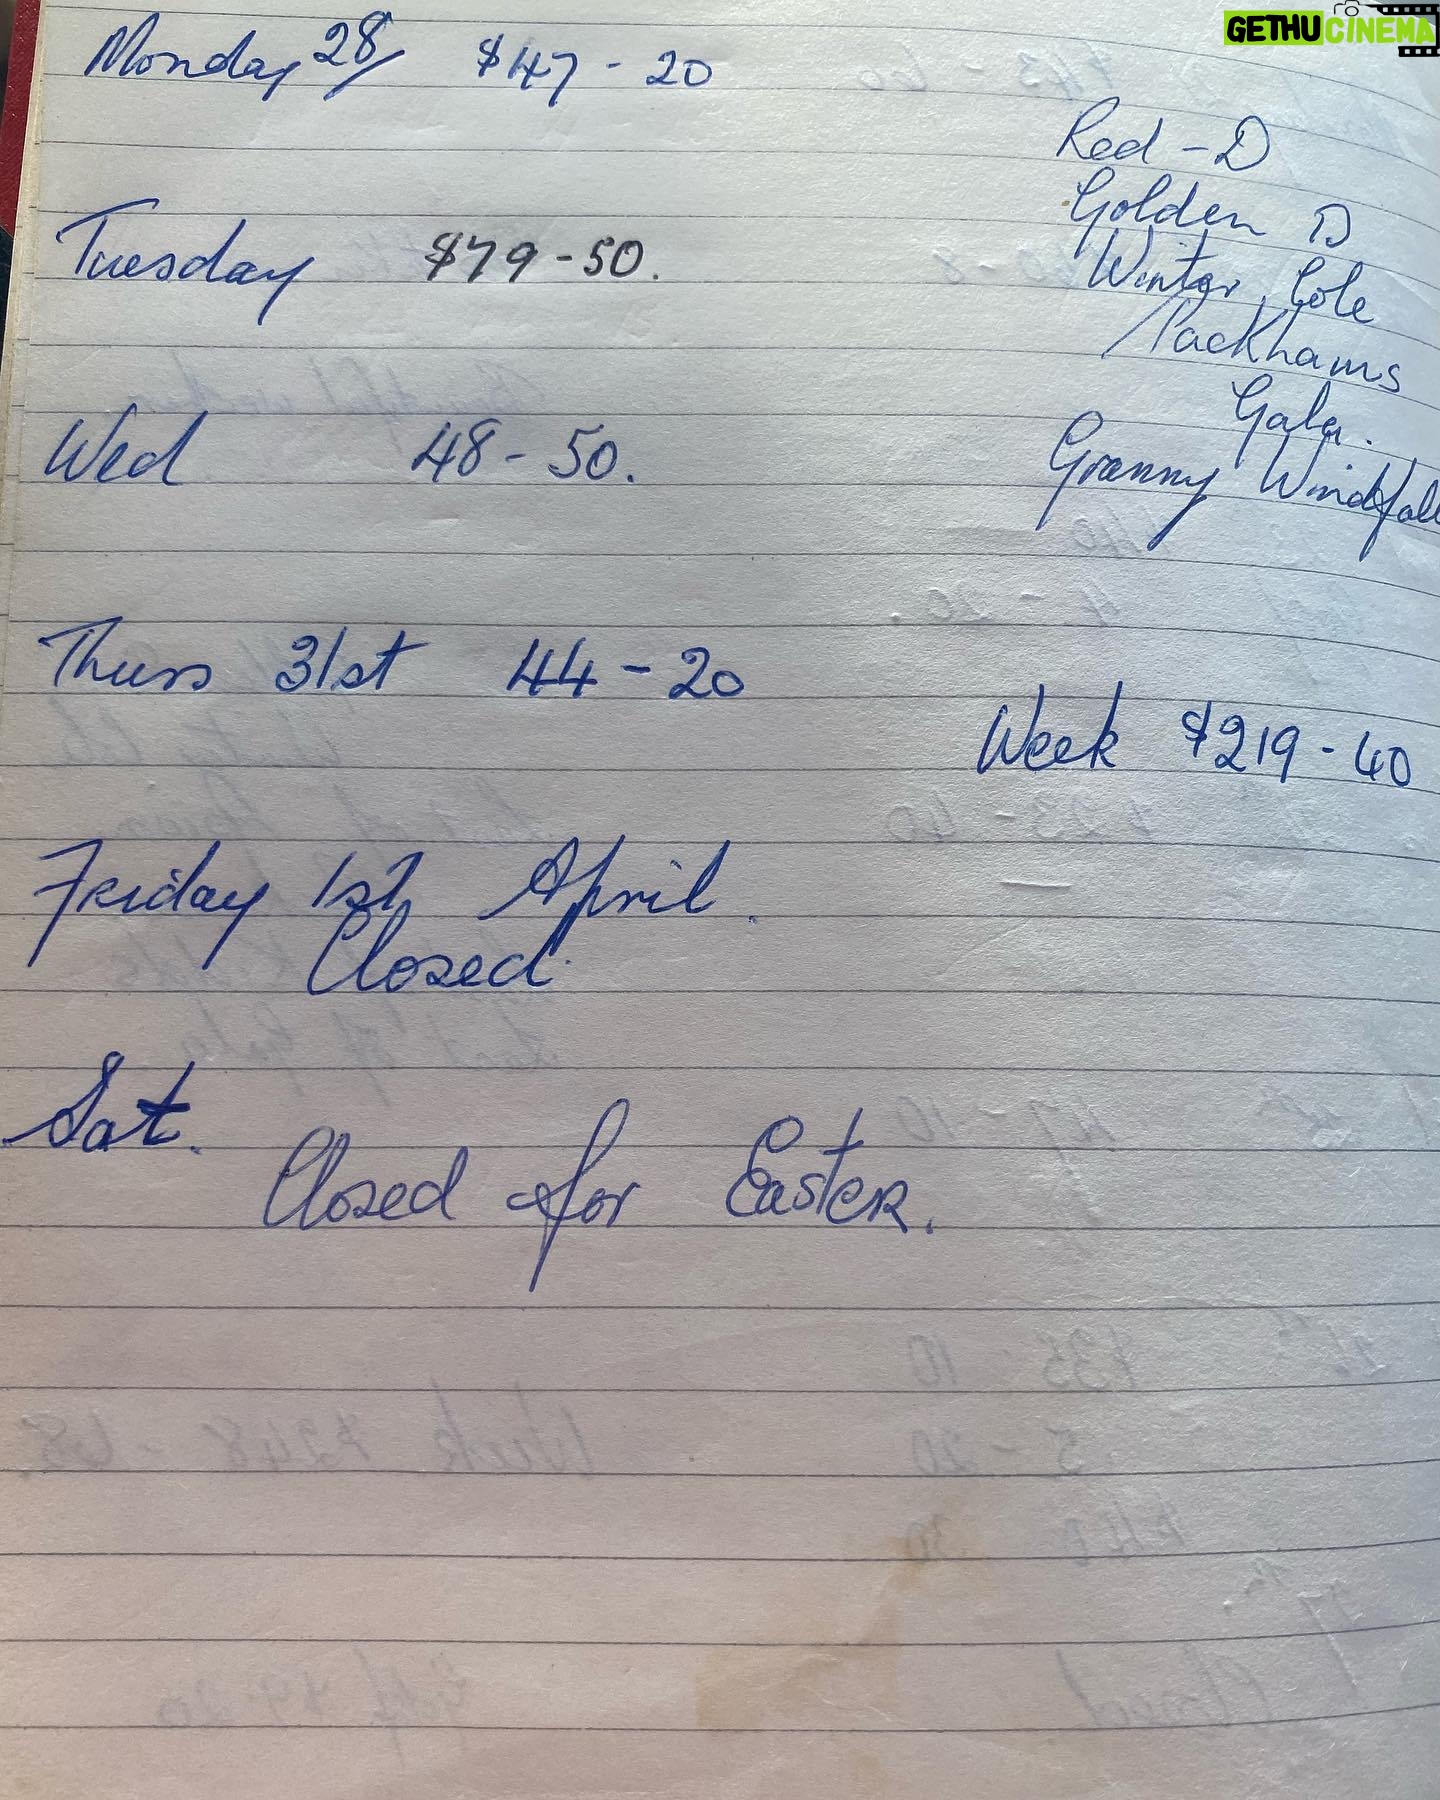 GETHU CINEMA
Monday 28/ $47-20
Red-D
Golden D
Tuesday $79-50.
Winter Cole
Packhams
Gala.
Wed 48-50.
Granny Windfall
Thurs 31st 44-20
Week $219-40
Friday 1st April.
Closed.
Sat.
Closed for Easter.